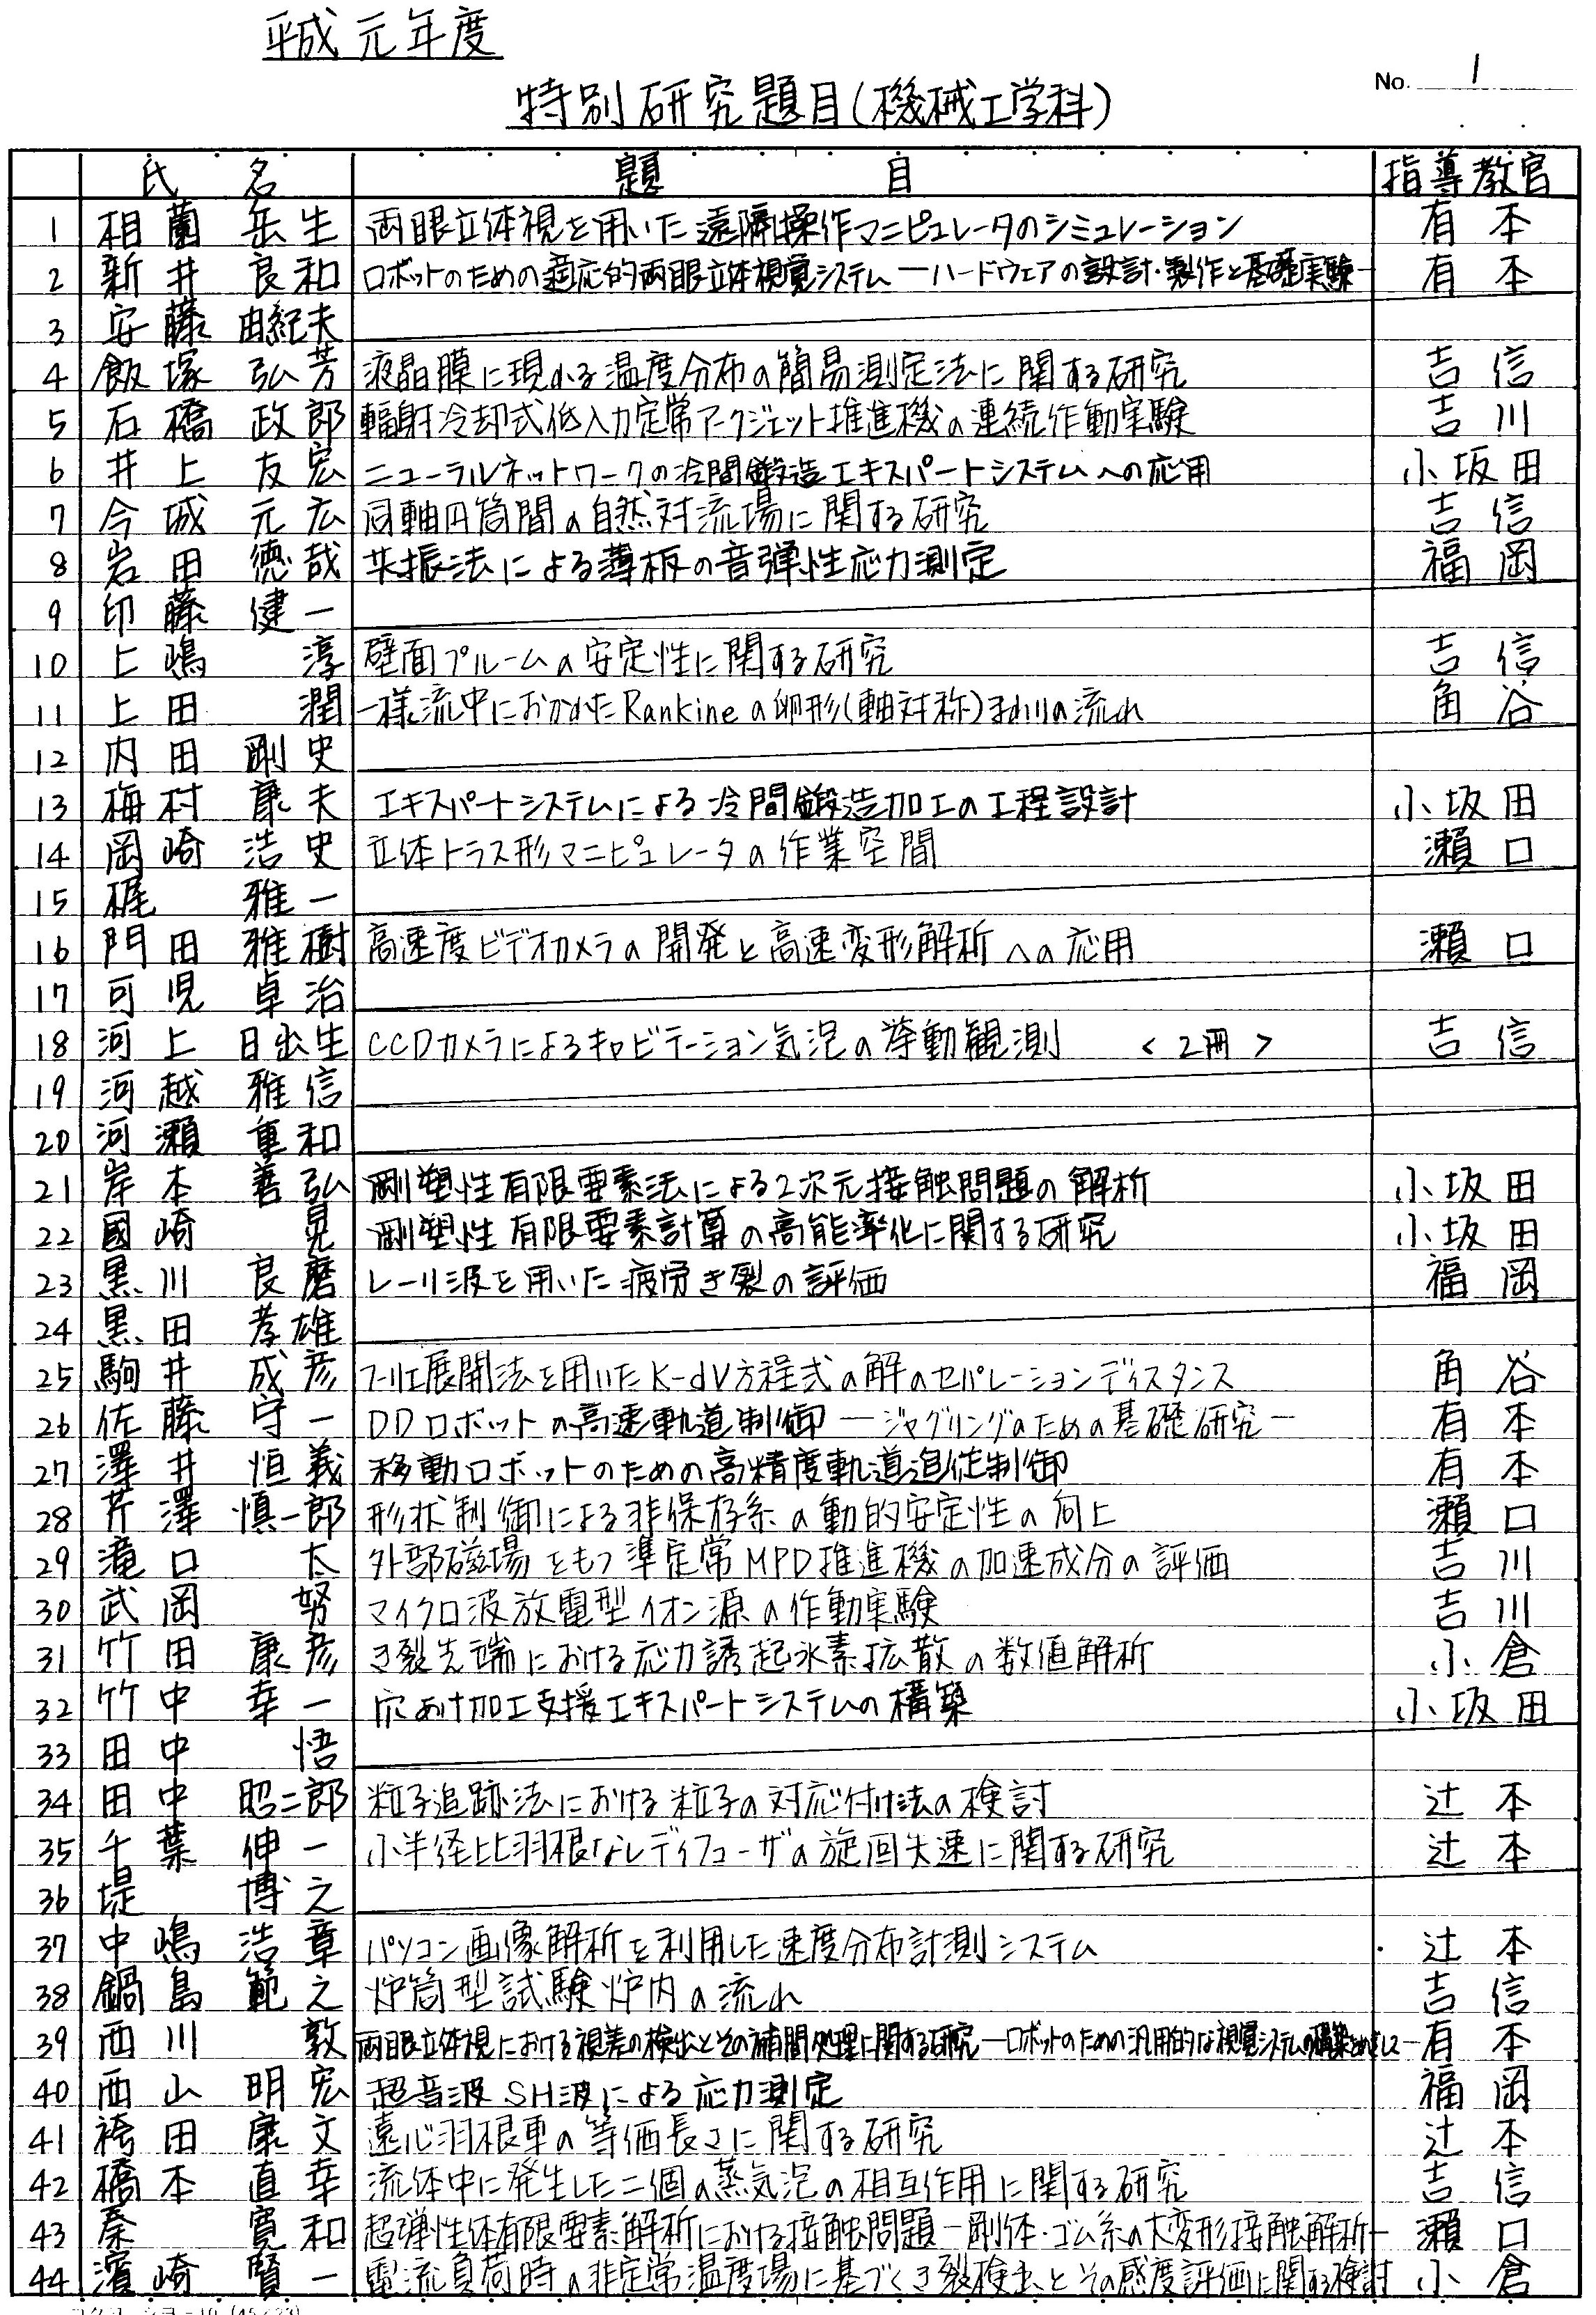 平成元年度
No. 1
特別研究題目(機械工学科)
氏名 題目 指導教官
1 相薗岳生 両眼立体視を用いた遠隔操作マニピュレータのシミュレーション 有本
2 新井良和 ロボットのための適応的両眼立体視覚システム ―ハードウェアの設計・製作と基礎実験― 有本
3 安藤由紀夫
4 飯塚弘芳 液晶膜に現れる温度分布の簡易測定法に関する研究 吉信
5 石橋政郎 輻射冷却式低入力定常アークジェット推進機の連続作動実験 吉川
6 井上友宏 ニューラルネットワークの冷間鍛造エキスパートシステムへの応用 小坂田
7 今城元広 同軸円筒間の自然対流場に関する研究 吉信
8 岩田徳哉 共振法による薄板の音弾性応力測定 福岡
9 印藤健一
10 上嶋淳 壁面プルームの安定性に関する研究 吉信
11 上田潤 一様流中におかれたRankineの卵形(軸対称)まわりの流れ 角谷
12 内田剛史
13 梅村康夫 エキスパートシステムによる冷間鍛造加工の工程設計 小坂田
14 岡崎浩史 立体トラス形マニピュレータの作業空間 瀬口
15 梶雅一
16 門田雅樹 高速度ビデオカメラの開発と高速変形解析への応用 瀬口
17 可児卓治
18 河上日出生 CCDカメラによるキャビテーション気泡の挙動観測 <2冊> 吉信
19 河越雅信
20 河瀬重和
21 岸本善弘 剛塑性有限要素法による2次元接触問題の解析 小坂田
22 國崎晃 剛塑性有限要素計算の高能率化に関する研究 小坂田
23 黒川良磨 レーリ波を用いた疲労き裂の評価 福岡
24 黒田孝雄
25 駒井成彦 フーリエ展開法を用いたK-dV方程式の解のセパレーションディスタンス 角谷
26 佐藤守一 DDロボットの高速軌道制御 ―ジャグリングのための基礎研究― 有本
27 澤井恒義 移動ロボットのための高精度軌道追従制御 有本
28 芹澤慎一郎 形状制御による非保存系の動的安定性の向上 瀬口
29 滝口太 外部磁場をもつ準定常MPD推進機の加速成分の評価 吉川
30 武岡努 マイクロ波放電型イオン源の作動実験 吉川
31 竹田康彦 き裂先端における応力誘起水素拡散の数値解析 小倉
32 竹中幸一 穴あけ加工支援エキスパートシステムの構築 小坂田
33 田中悟
34 田中昭二郎 粒子追跡法における粒子の対応付け法の検討 辻本
35 千葉伸一 小半径比羽根なしディフューザの旋回失速に関する研究 辻本
36 堤博之
37 中嶋浩章 パソコン画像解析を利用した速度分布計測システム 辻本
38 鍋島範之 炉筒型試験炉内の流れ 吉信
39 西川敦 両眼立体視における視差の検出とその補間処理に関する研究 ―ロボットのための汎用的な視覚システムの構築をめざして― 有本
40 西山明宏 超音波SH波による応力測定 福岡
41 袴田康文 遠心羽根車の等価長さに関する研究 辻本
42 橋本直幸 流体中に発生した二個の蒸気泡の相互作用に関する研究 吉信
43 秦寛和 超弾性体有限要素解析における接触問題 ―剛体・ゴム系の大変形接触解析― 瀬口
44 濱崎賢一 電流負荷時の非定常温度場に基づくき裂検出とその感度評価に関する検討 小倉